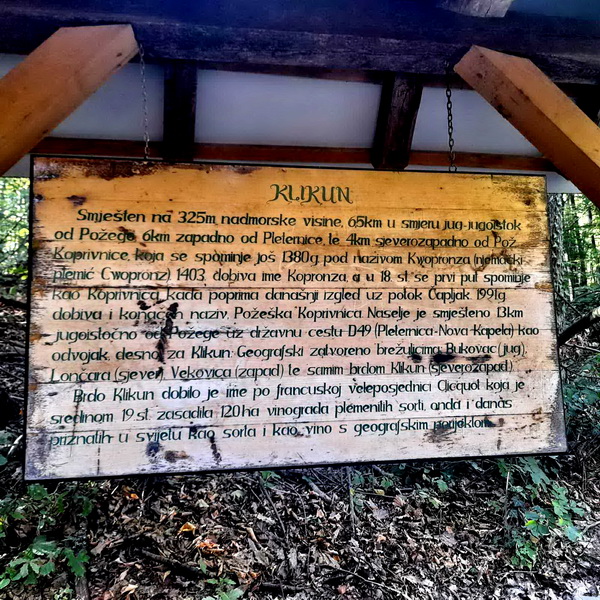 KLIKUN
Smješten na 325m nadmorske visine, 6,5km u smjeru jug-jugoistok
od Požege, 6km zapadno od Pleternice, te 4km sjeverozapadno od Pož.
Koprivnice, koja se spominje još 1380g. pod nazivom Kwopronza (njemački
plemić Cwopronz) 1403. dobiva ime Kopronza, a u 18. st. se prvi put spominje
kao Koprivnica, kada poprima današnji izgled uz potok Čapljak. 1991g
dobiva i konačan naziv, Požeška Koprivnica. Naselje je smješteno 13km
jugoistočno od Požege uz državnu cestu D49 (Pleternica-Nova Kapela) kao
odvojak, desno, za Klikun. Geografski zatvoreno brežuljcima Bukovac (jug),
Lončara (sjever), Vekovica (zapad) te samim brdom Klikun (sjeverozapad).
Brdo Klikun dobilo je ime po francuskoj veleposjednici Clicquot koja je
sredinom 19.st. zasadila 120ha vinograda plemenitih sorti, onda i danas
priznatih u svijetu kao sorta i kao vino s geografskim